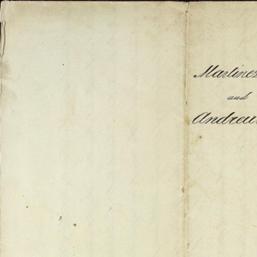 Martines
and
Andreu